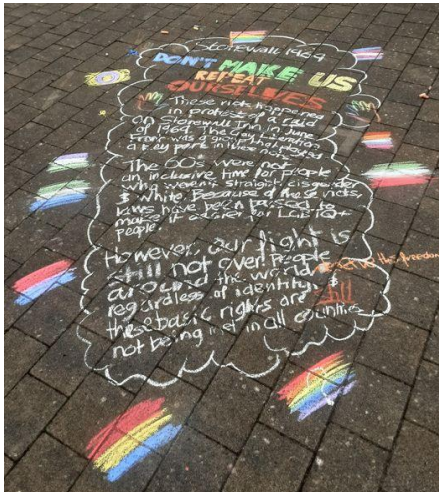 Stonewall 1969
DON'T MAKE US
REPEAT
OURSELVES
These riots happened
in protest of a raid
on Stonewall Inn in June
of 1969. The Gay Liberation
Front was a group that played
a key part in these riots.
The 60's were not
an inclusive time for people
who weren't straight, cisgender
& white. Because of these riots,
laws have been passed to
make it easier for LGBTQ+
people.
However, our fight is
still not over. People
around the world
regardless of identity
deserve this freedom
these basic rights are still
not being met in all countries